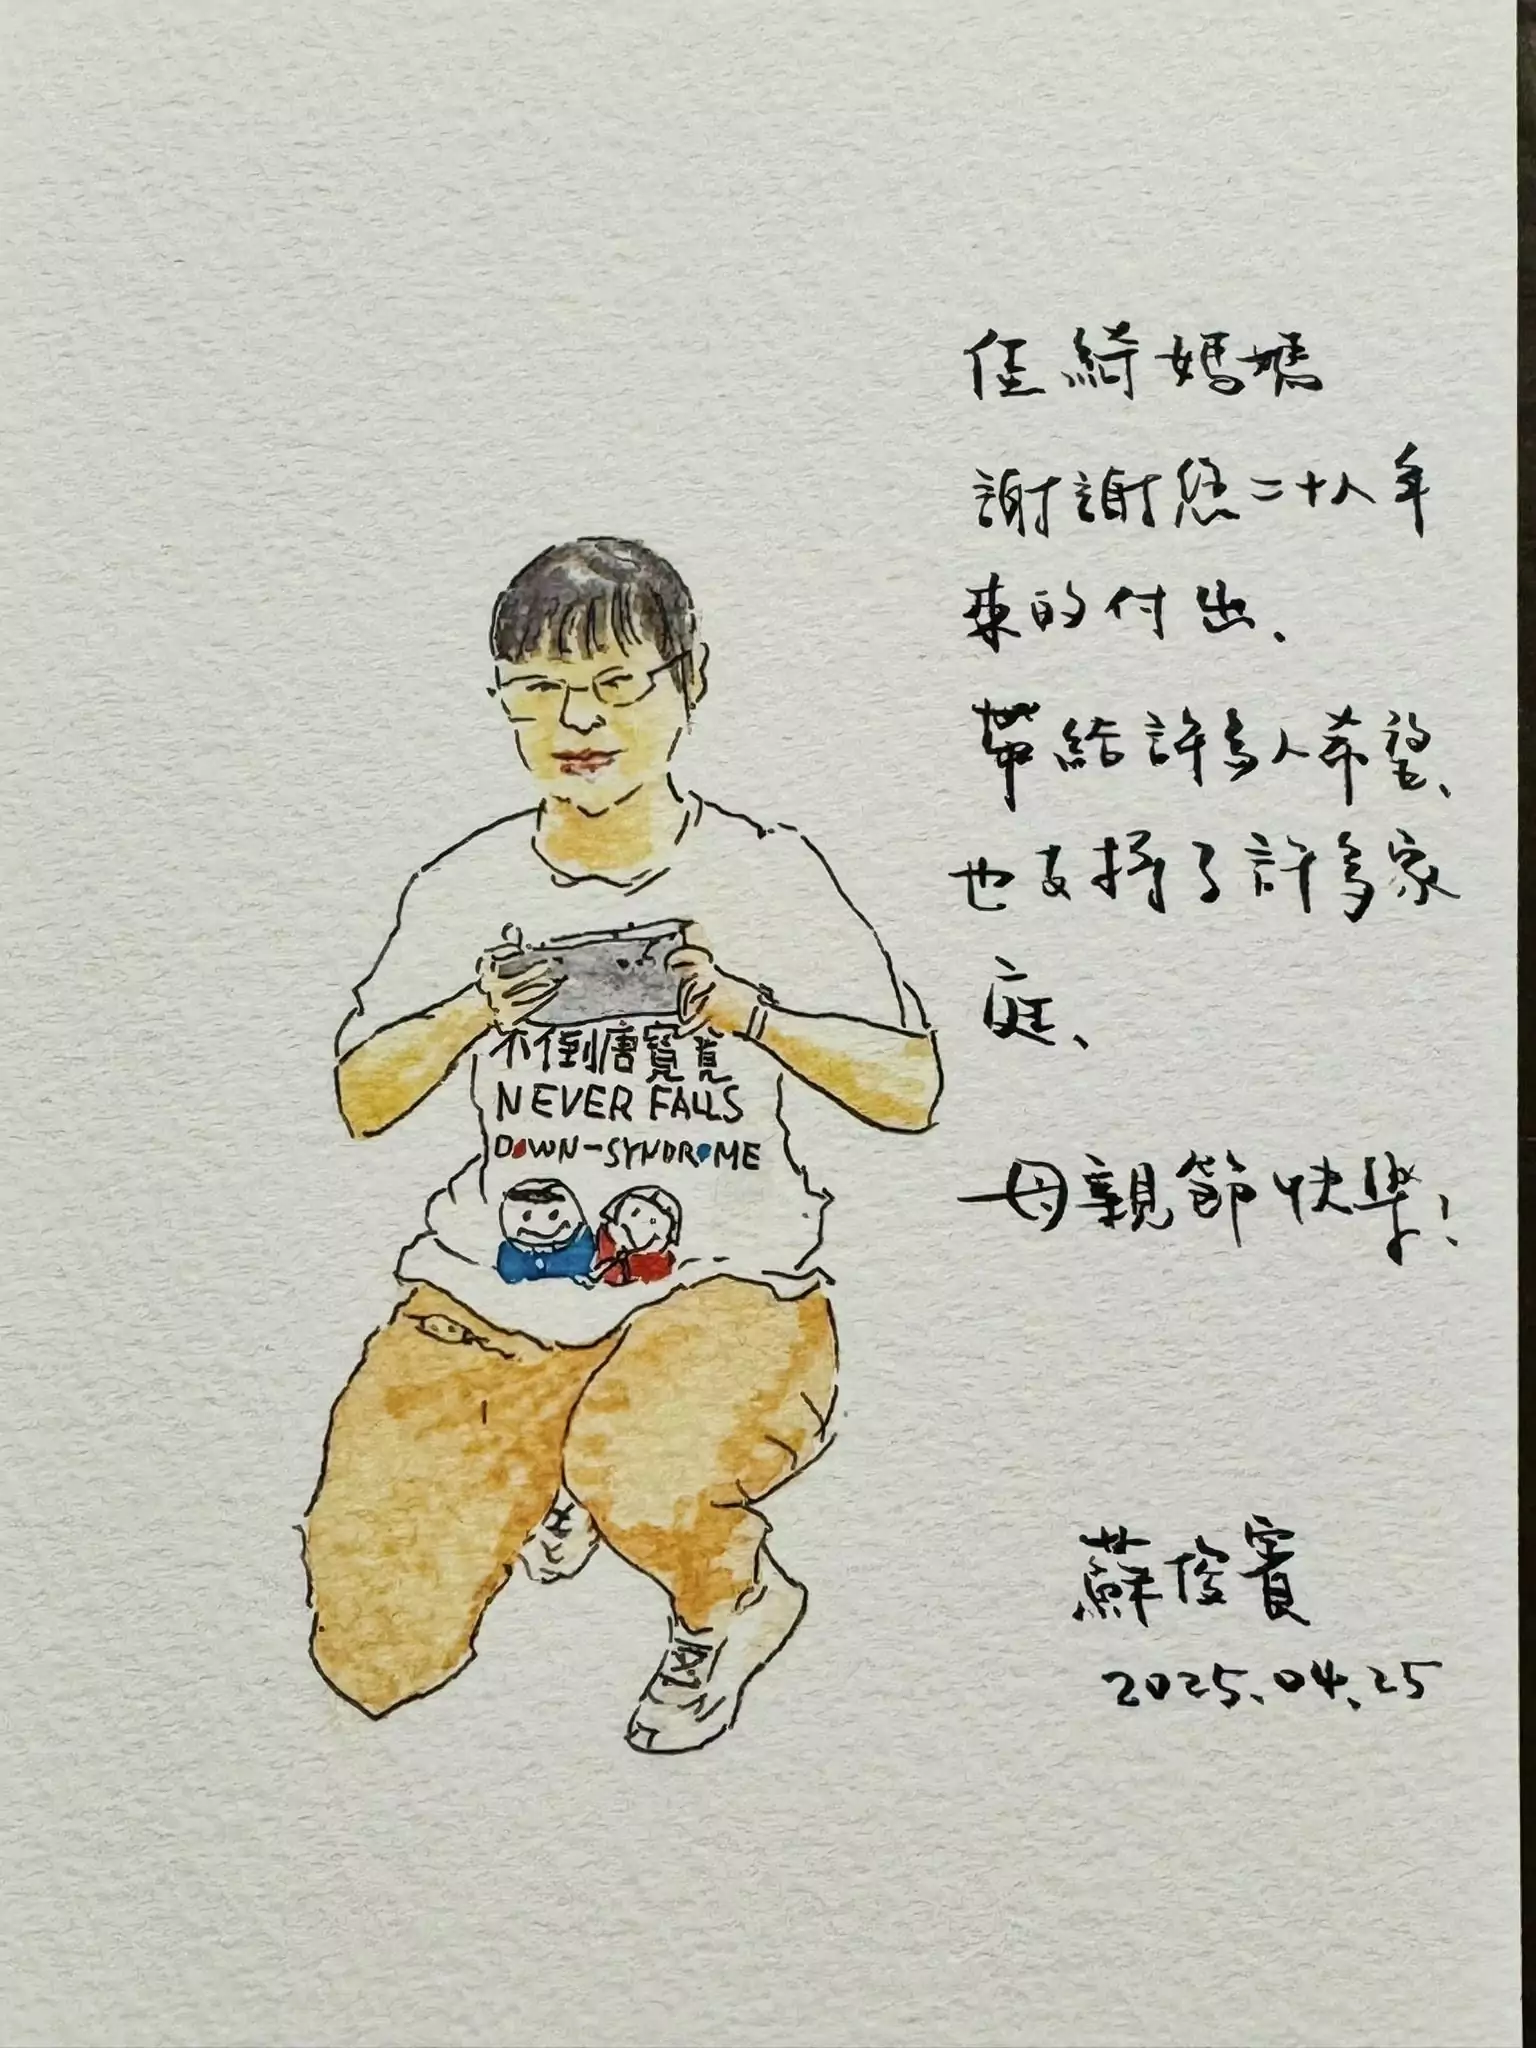 佳綺媽媽
謝謝您二十八年
來的付出、
帶給許多人希望、
也支持了許多家
庭、
母親節快樂!
蘇俊賓
2025.04.25
不倒唐寶寶
NEVER FALLS
DOWN-SYNDROME